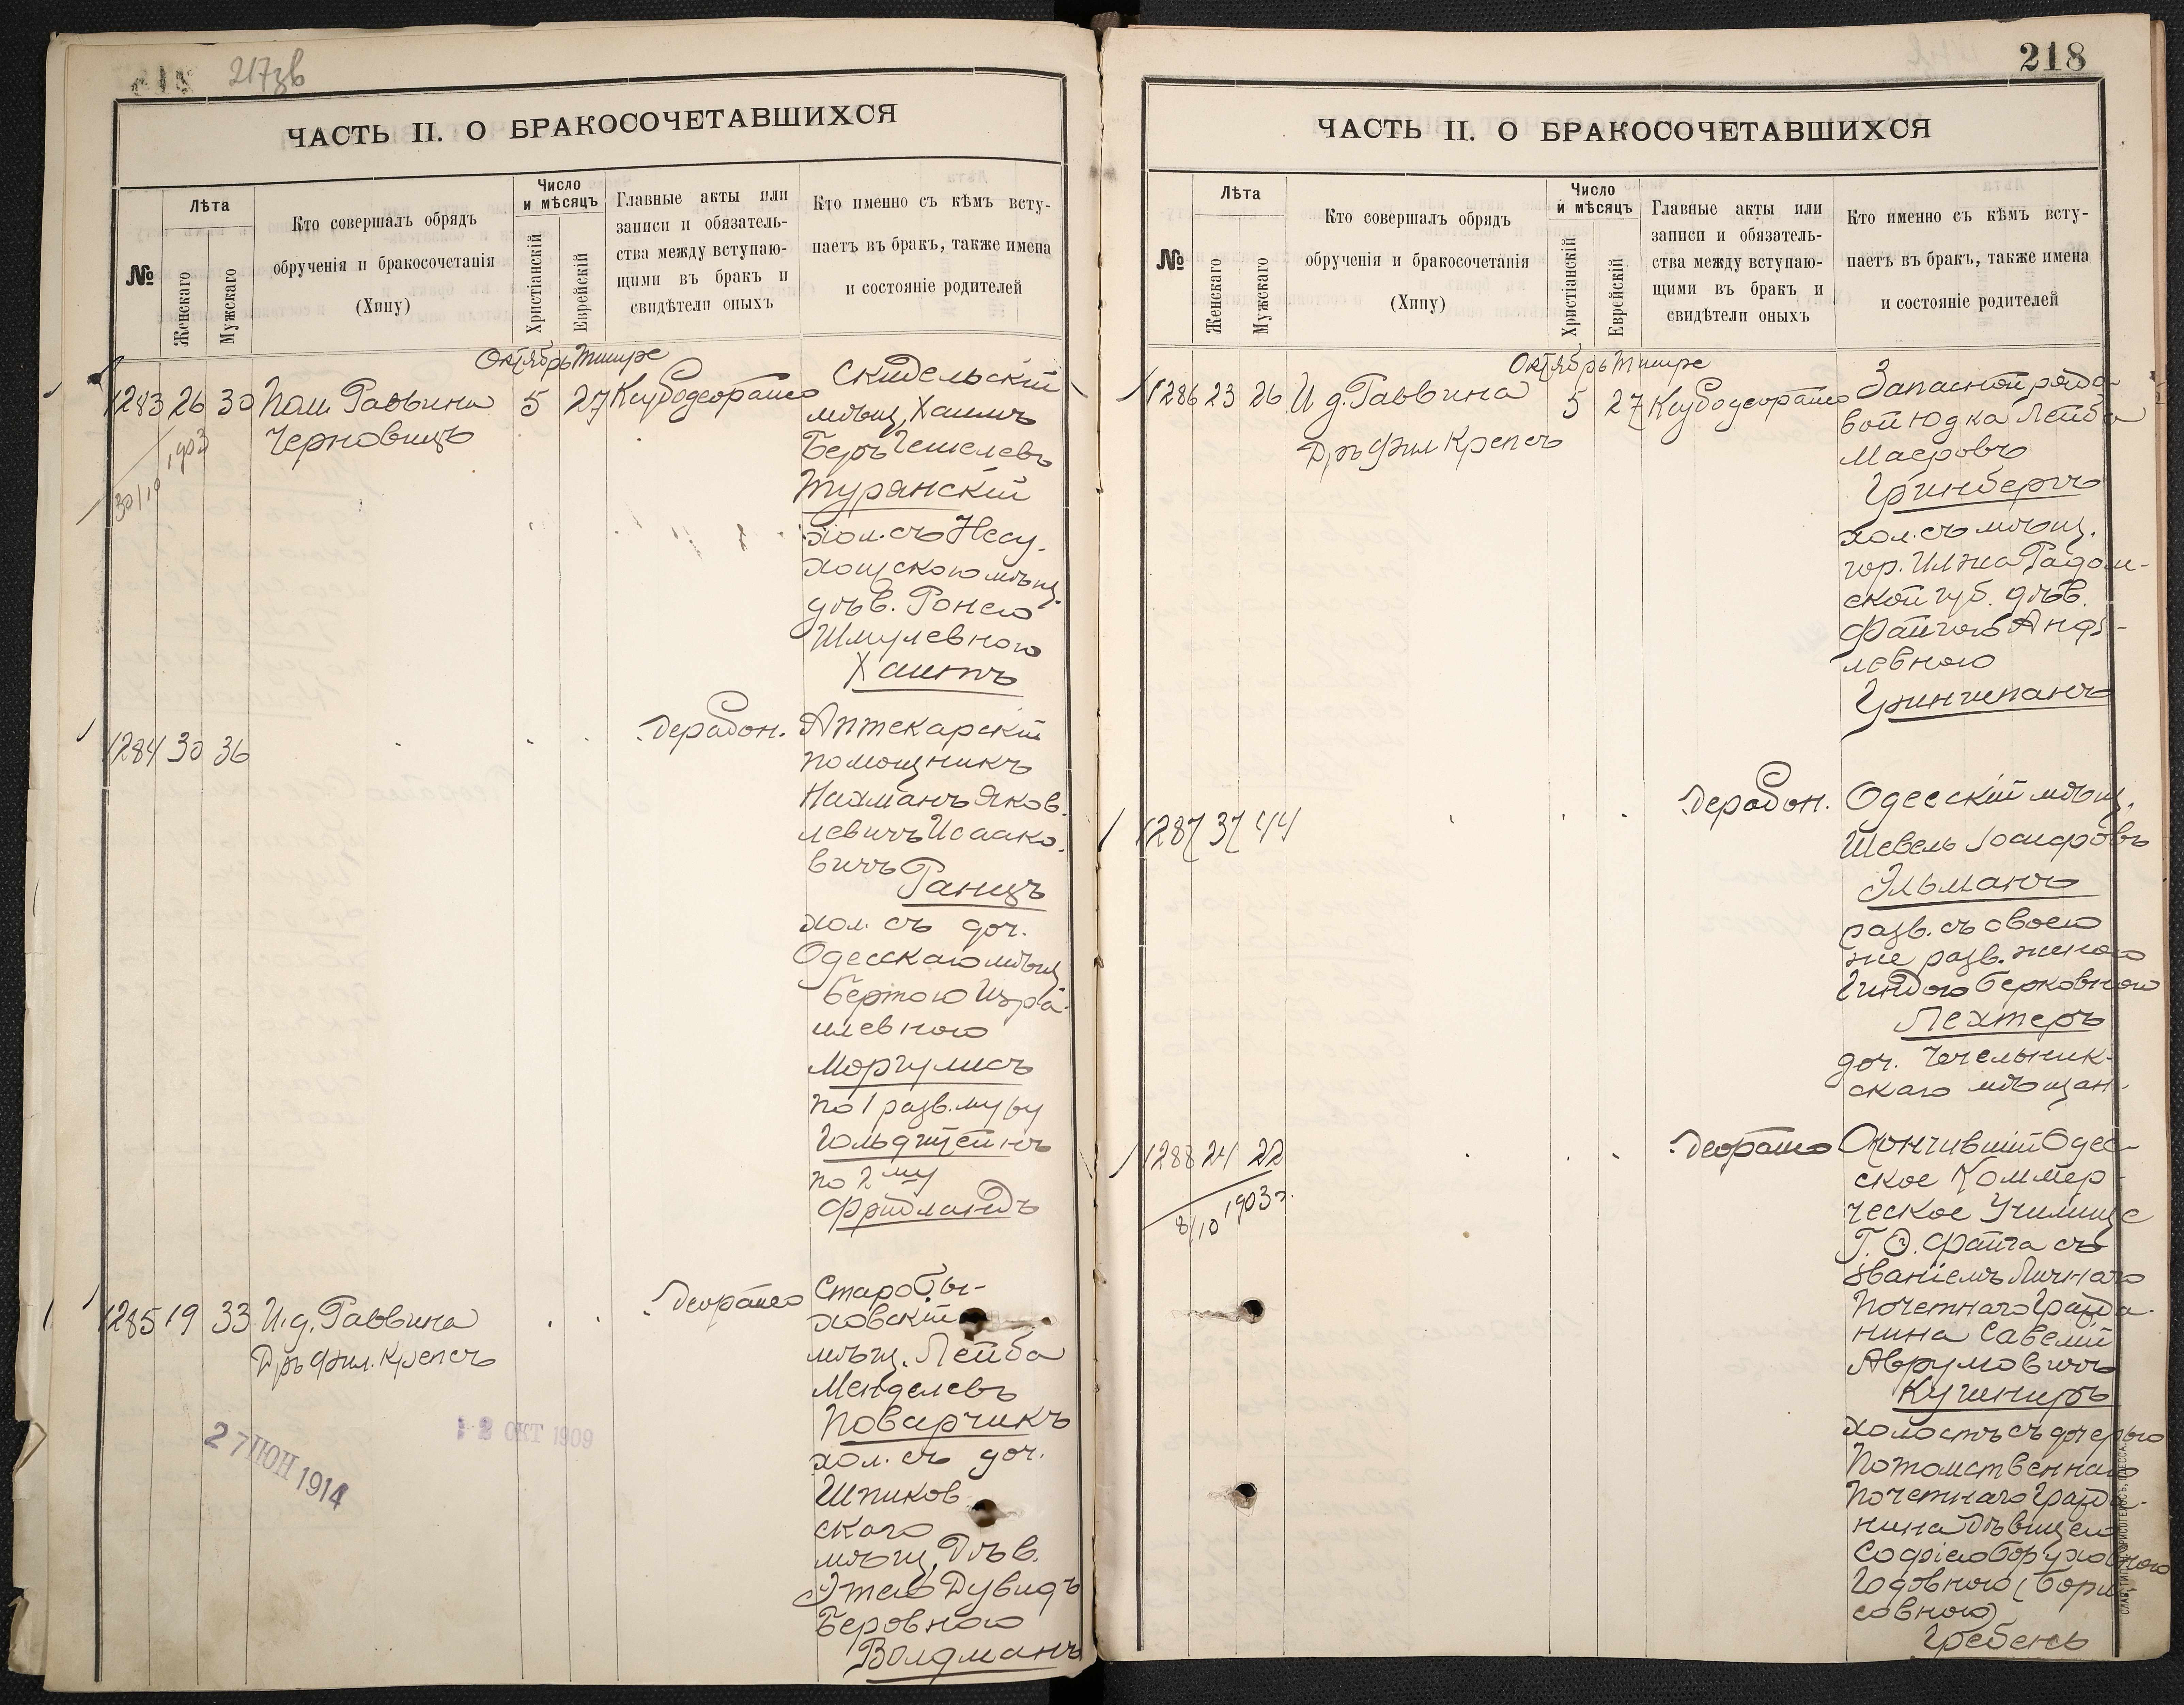 217зв
ЧАСТЬ II. О БРАКОСОЧЕТАВШИХСЯ
№
Лѣта
Женскаго
Мужскаго
Кто совершалъ обрядъ
обрученія и бракосочетанія
(Хипу)
Число
и мѣсяцъ
Христіанскій
Еврейскій
Главные акты или
записи и обязатель-
ства между вступаю-
щими въ бракъ и
свидѣтели оныхъ
Кто именно съ кѣмъ всту-
паетъ въ бракъ, также имена
и состояніе родителей
Октябрь Тишре
1283 26 30 Пом. Раввина 5 27
Черновицъ
30/10 1903
Скидельскій
мѣщ. Хаимъ
Беръ Гешелевъ
Турянскій
хол. съ Несу-
хоцскою мѣщ.
дѣв. Ронею
Шмулевною
Хаитъ
1284 30 36
Аптекарскій
помощникъ
Нахманъ Яков-
левичъ Исаако-
вичъ
Ранцъ
хол. съ доч.
Одесскаго мѣщ.
Бертою Изра-
илевною
Моргулисъ
по 1 разв. мужу
Гольдштейнъ
по 2му
Фридландъ
1285 19 33 И. д. Раввина
Дръ фил. Крепсъ
Старобы-
ховскій
мѣщ. Лейба
Менделевъ
Поварчикъ
хол. съ доч.
Шпиков-
скаго
мѣщ. Дѣв.
Этею Дувидъ
Беровною
Волдманъ
27 ІЮН 1914
12 ОКТ 1909
218
ЧАСТЬ II. О БРАКОСОЧЕТАВШИХСЯ
№
Лѣта
Женскаго
Мужскаго
Кто совершалъ обрядъ
обрученія и бракосочетанія
(Хипу)
Число
и мѣсяцъ
Христіанскій
Еврейскій
Главные акты или
записи и обязатель-
ства между вступаю-
щими въ бракъ и
свидѣтели оныхъ
Кто именно съ кѣмъ всту-
паетъ въ бракъ, также имена
и состояніе родителей
Октябрь Тишре
1286 23 26 И д. Раввина 5 27
Дръ фил Крепсъ
Запасной рядо-
вой Юдка Лейба
Маеровъ
Гринбергъ
хол. съ мѣщ.
гор. Илжа Радом-
ской губ. дѣв.
Файгою Анф-
левною
Гриншпанъ
1287 37 44
Одесскій мѣщ.
Шевель Іосифовъ
Эльманъ
разв. съ своею
же разв. женою
Гиндою Берковною
Лехтеръ
доч. Чечельник-
скаго мѣщан.
1288 24 22
8/10 1903 г.
Окончившій Одес-
ское Коммер-
ческое Училище
Г. Ф. Файга съ
званіемъ Личнаго
Почетнаго Гражда-
нина Савелій
Аврумовичъ
Кушниръ
холостъ съ дочерью
Потомственнаго
Почетнаго Гражда-
нина Дѣвицею
Софіею Боруховною
Годовною (Бори-
совною)
Гребень